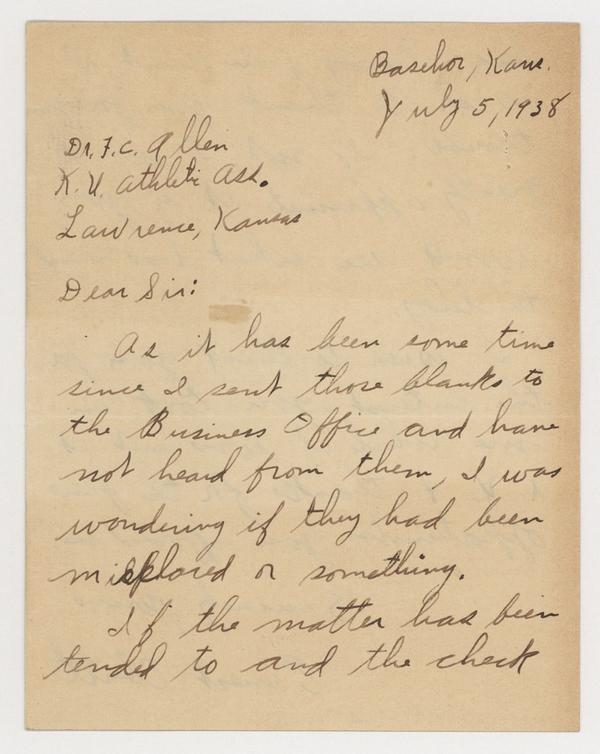 Basehor, Kans.
July 5, 1938
Dr. F. C. Allen
K. U. Athletic Ass.
Lawrence, Kansas
Dear Sir:
As it has been some time
since I sent those blanks to
the Business Office and have
not heard from them, I was
wondering if they had been
misplaced or something.
If the matter has been
tended to and the check